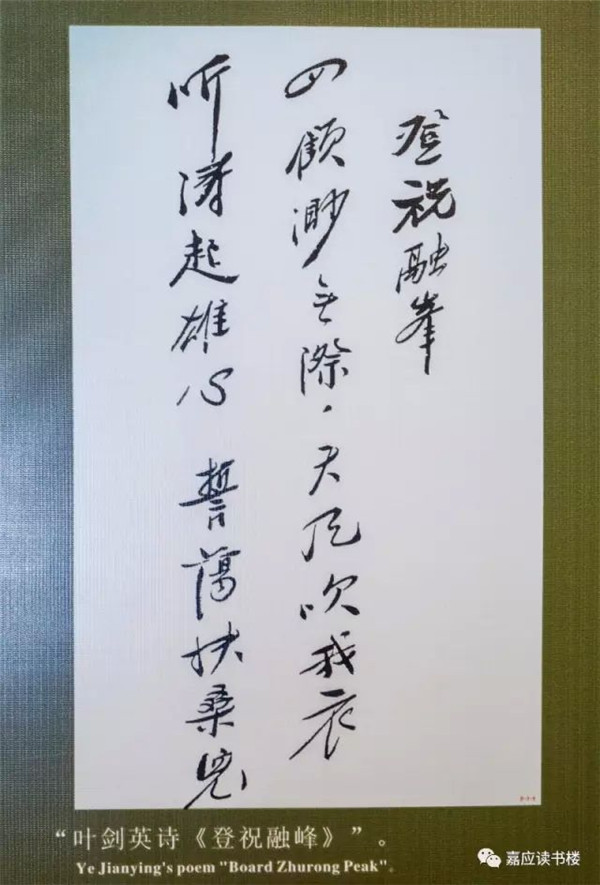 登祝融峯
四顧渺無際，天风吹我衣
听涛起雄心 誓蕩扶桑児
“叶剑英诗《登祝融峰》”。
Ye Jianying's poem "Board Zhurong Peak"。
嘉应读书楼